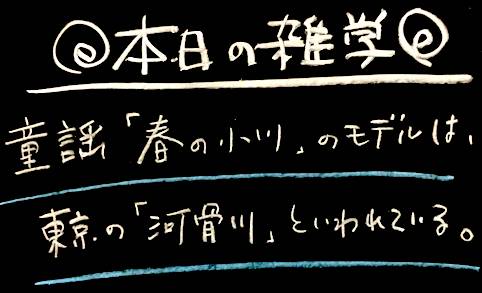 本日の雑学
童謡「春の小川」のモデルは、
東京の「河骨川」といわれている。